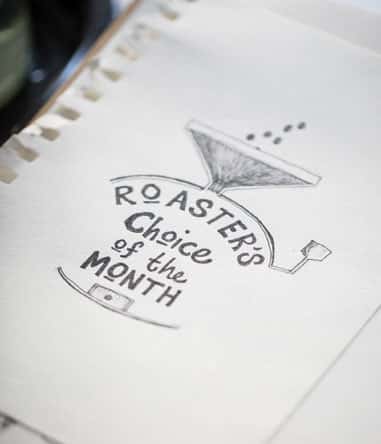 ROASTER'S
Choice
of the
MONTH